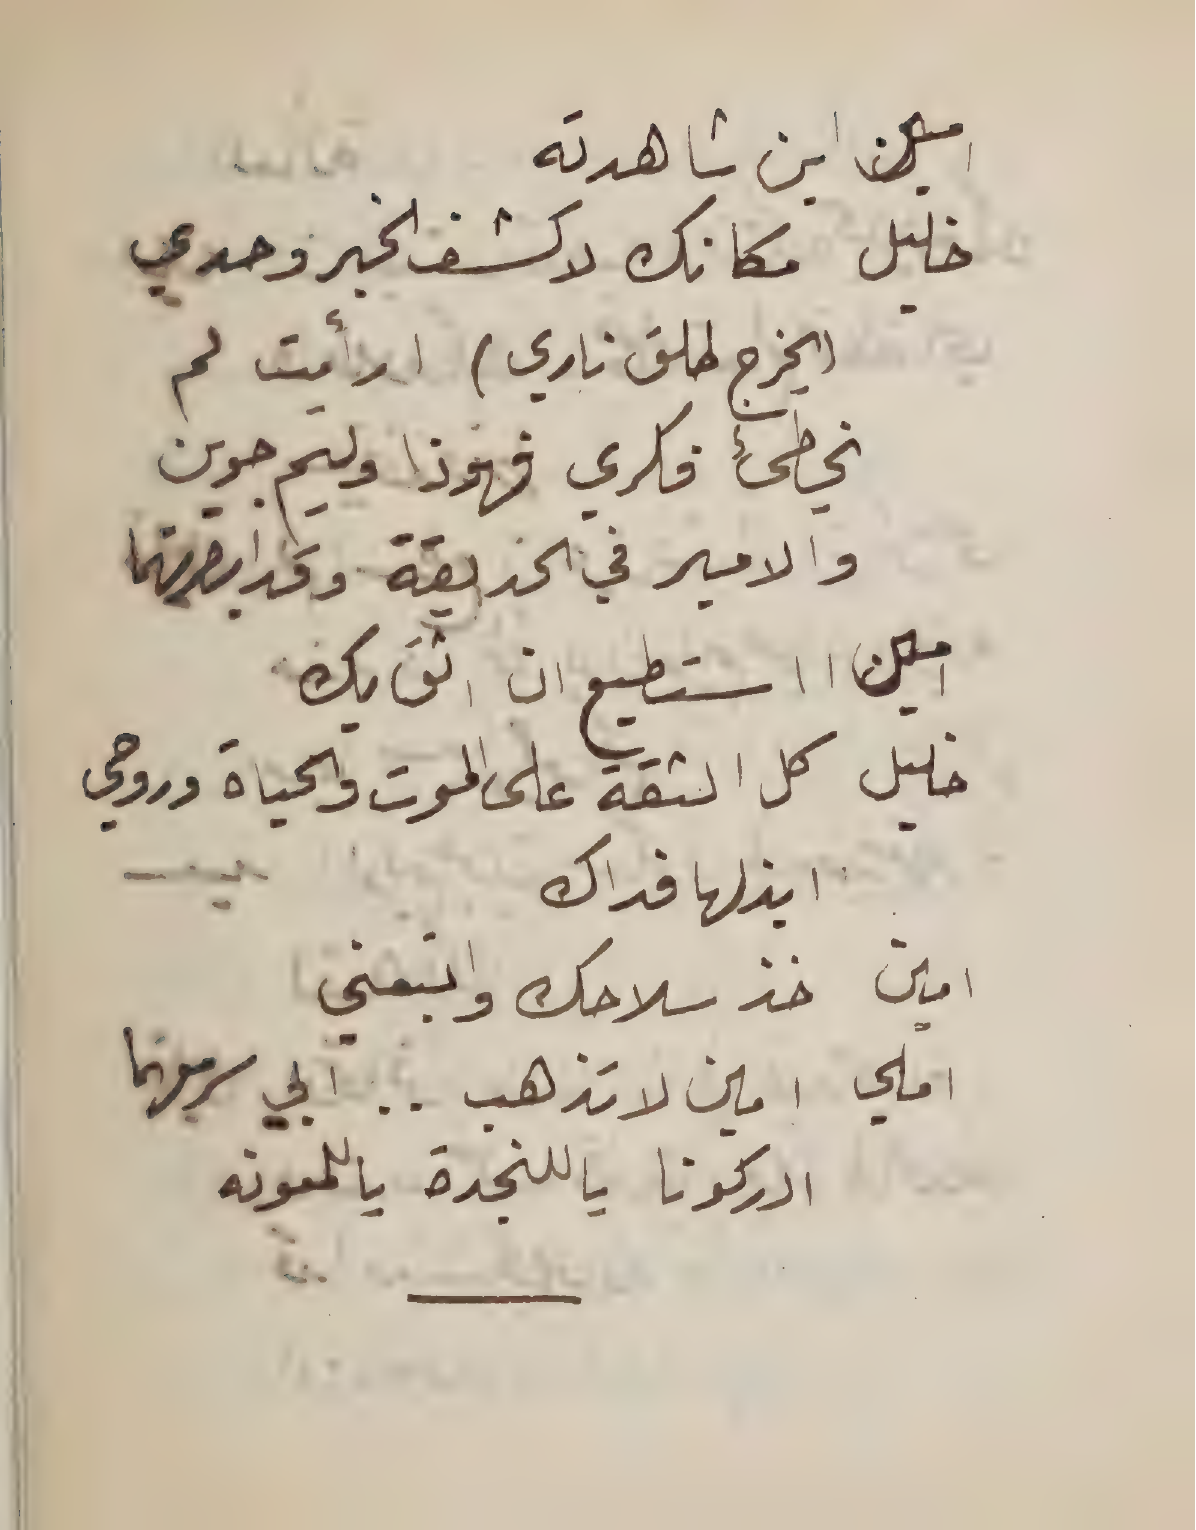 امين اين شاهدته
خليل مكانك لاكشف الخبر وحدي
(يخرج طلق ناري) ارأيت لم
يخطئ فكري فهوذا وليم جوين
والامير في الحديقة وقد ابصرتهما
امين ااستطيع ان اثق بك
خليل كل الثقة على الموت والحياة وروحي
ابذلها فداك
امين خذ سلاحك واتبعني
املي امين لا تذهب .. ابي
ادركونا ياللنجدة ياللمعونه